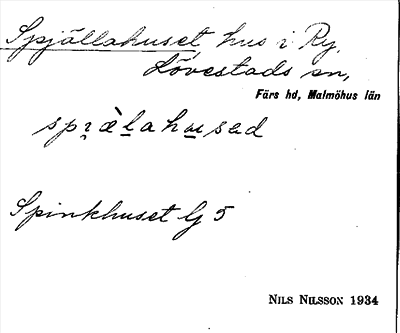 Spjällahuset, hus i Ry,
Lövestads sn,
Färs hd, Malmöhus län
Spinkhuset G 5
NILS NILSSON 1934